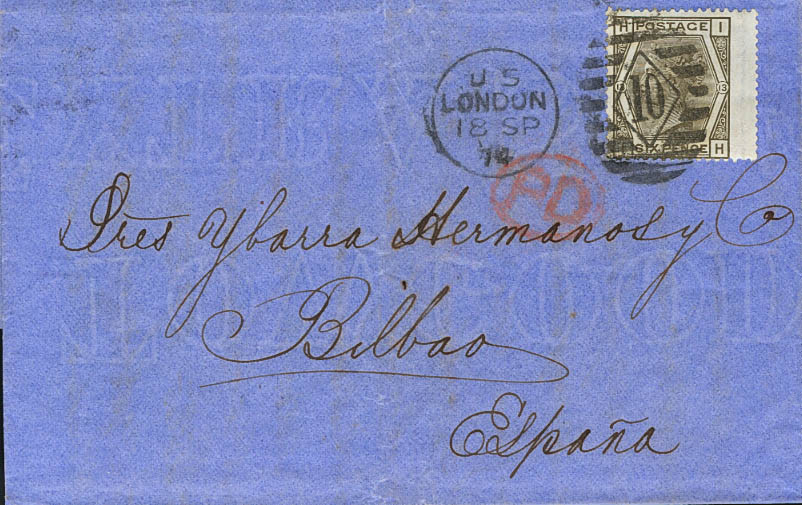 H POSTAGE I
13 10 13
SIX PENCE H
U S
LONDON
18 SP
74
PD
Sres Ybarra Hermanos y Cª
Bilbao
España